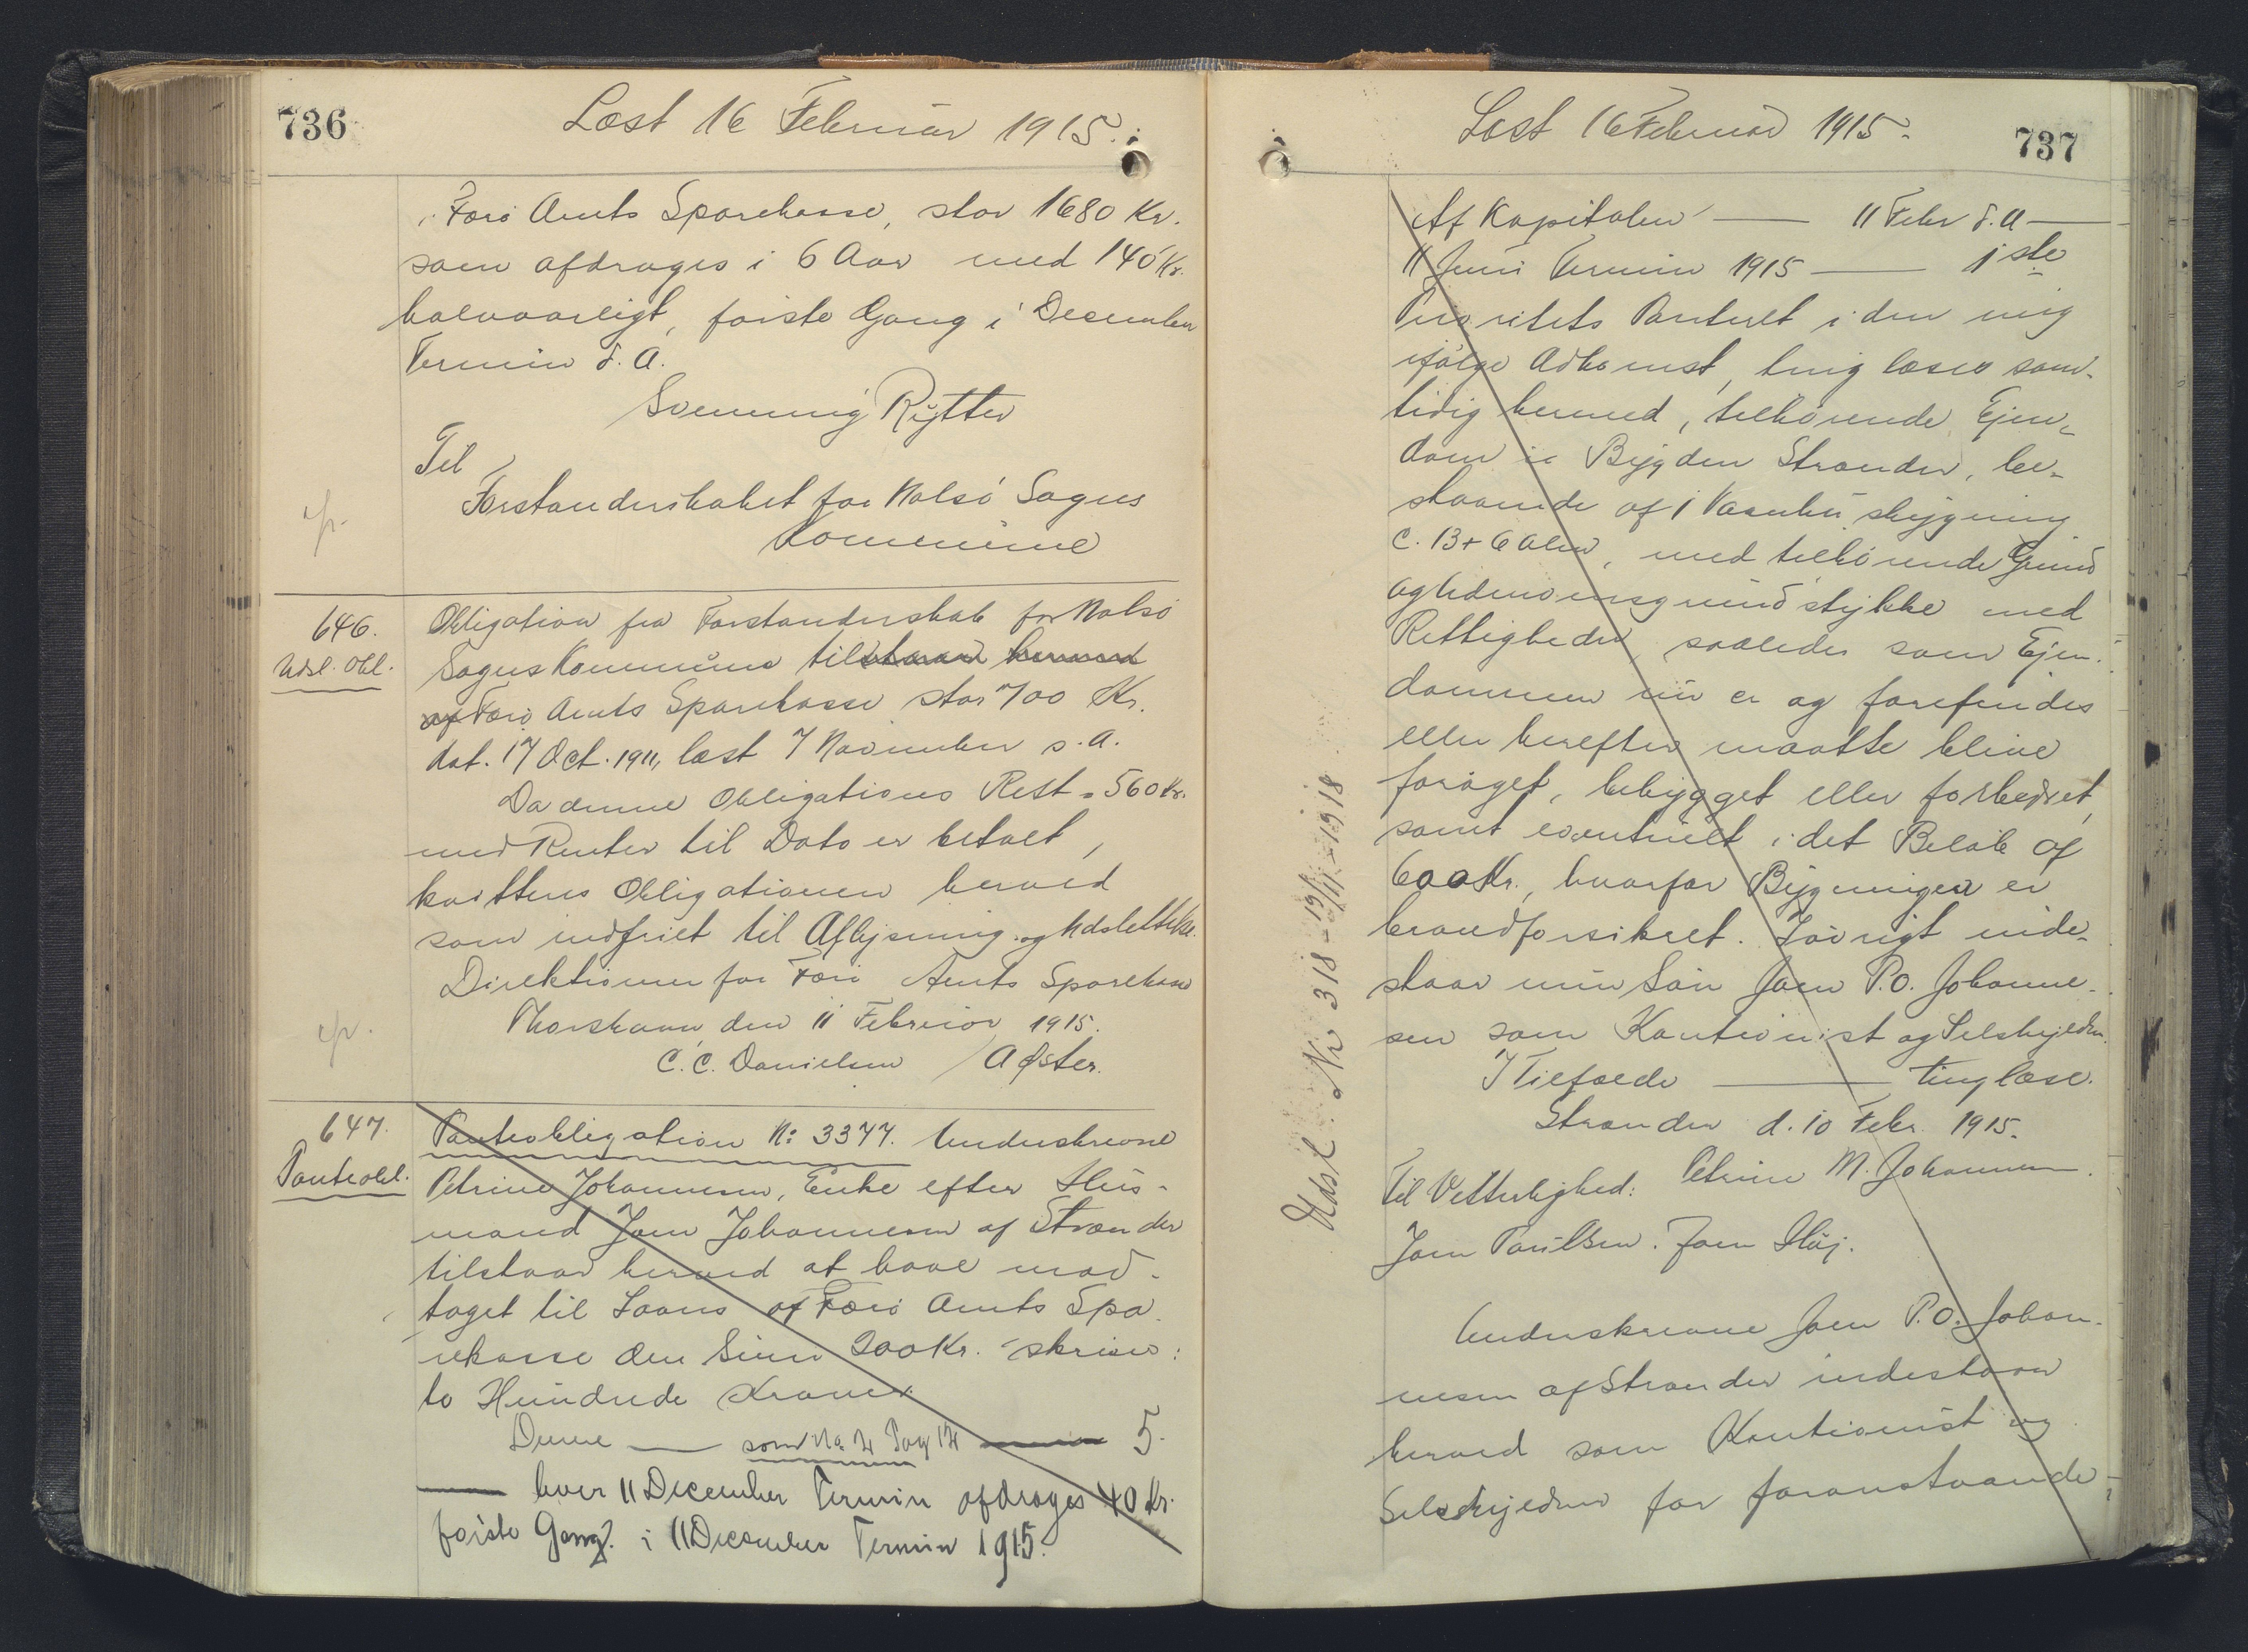 736
Læst 16 Februar 1915.
Færø Amts Sparekasse, stor 1680 Kr.
som afdrages i 6 Aar med 140 Kr.
halvaarligt, første Gang i December
Termin d. A.
Svenning Rytter
Til
Forstanderskabet for Nolsø Sogns
Kommune
646.
Udsl. Obl.
Obligation fra Forstanderskab for Nolsø
Sogns Kommune til
af Færø Amts Sparekasse stor 700 Kr.
dat. 17 Oct. 1911, læst 7 November s. A.
Da denne Obligations Rest = 560 Kr.
med Renter til Dato er betalt,
kvitteres Obligationen herved
som indfriet til Aflysning og Udslettelse.
Direktionen for Færø Amts Sparekasse
Thorshavn, den 11 Februar 1915.
C. C. Danielsen / A Øster.
647.
Panteobl.
Panteobligation No: 3377. Underskrevne
Petrine Johannesen, Enke efter Hus-
mand Joen Johannesen af Strænder
tilstaar herved at have mod-
taget til Laans af Færø Amts Spa-
rekasse den Sum 200 Kr. skriver:
to Hundrede Kroner.
Denne — som No 2 Pag 12 — 5.
— hver 11 December Termin afdrages 40 Kr.
første Gang i 11 December Termin 1915.
Læst 16 Februar 1915.
737
Af Kapitalen — 11 Febr d. A —
11 Juni Termin 1915 — 1ste
Prioritets Panteret i den mig
ifølge Adkomst, tinglæses sam-
tidig hermed, tilhørende Ejen-
dom i Bygden Strænder, be-
staaende af 1 Vaanhusbygning
c. 13 + 6 Alen, med tilhørende Grund
og Udenomsgrundstykke med
Rettigheder, saaledes som Ejen-
dommen nu er og forefindes
eller herefter maatte blive
forøget, bebygget eller forbedret,
samt eventuelt i det Beløb af
600 Kr., hvorfor Bygningen er
brandforsikret. Iøvrigt inde-
staar min Søn Joen P.O. Johanne-
sen som Kautionist og Selvskyldner.
I Tilfælde — tinglæse.
Strænder d. 10 Febr. 1915.
Petrine M. Johannesen.
Til Vitterlighed:
Joen Poulsen. Joen Høj.
Underskrevne Joen P.O. Johan-
nesen af Strænder indestaar
herved som Kautionist og
Selvskyldner for foranstaaende
Udsl. Nr 318 - 19/11 - 1918